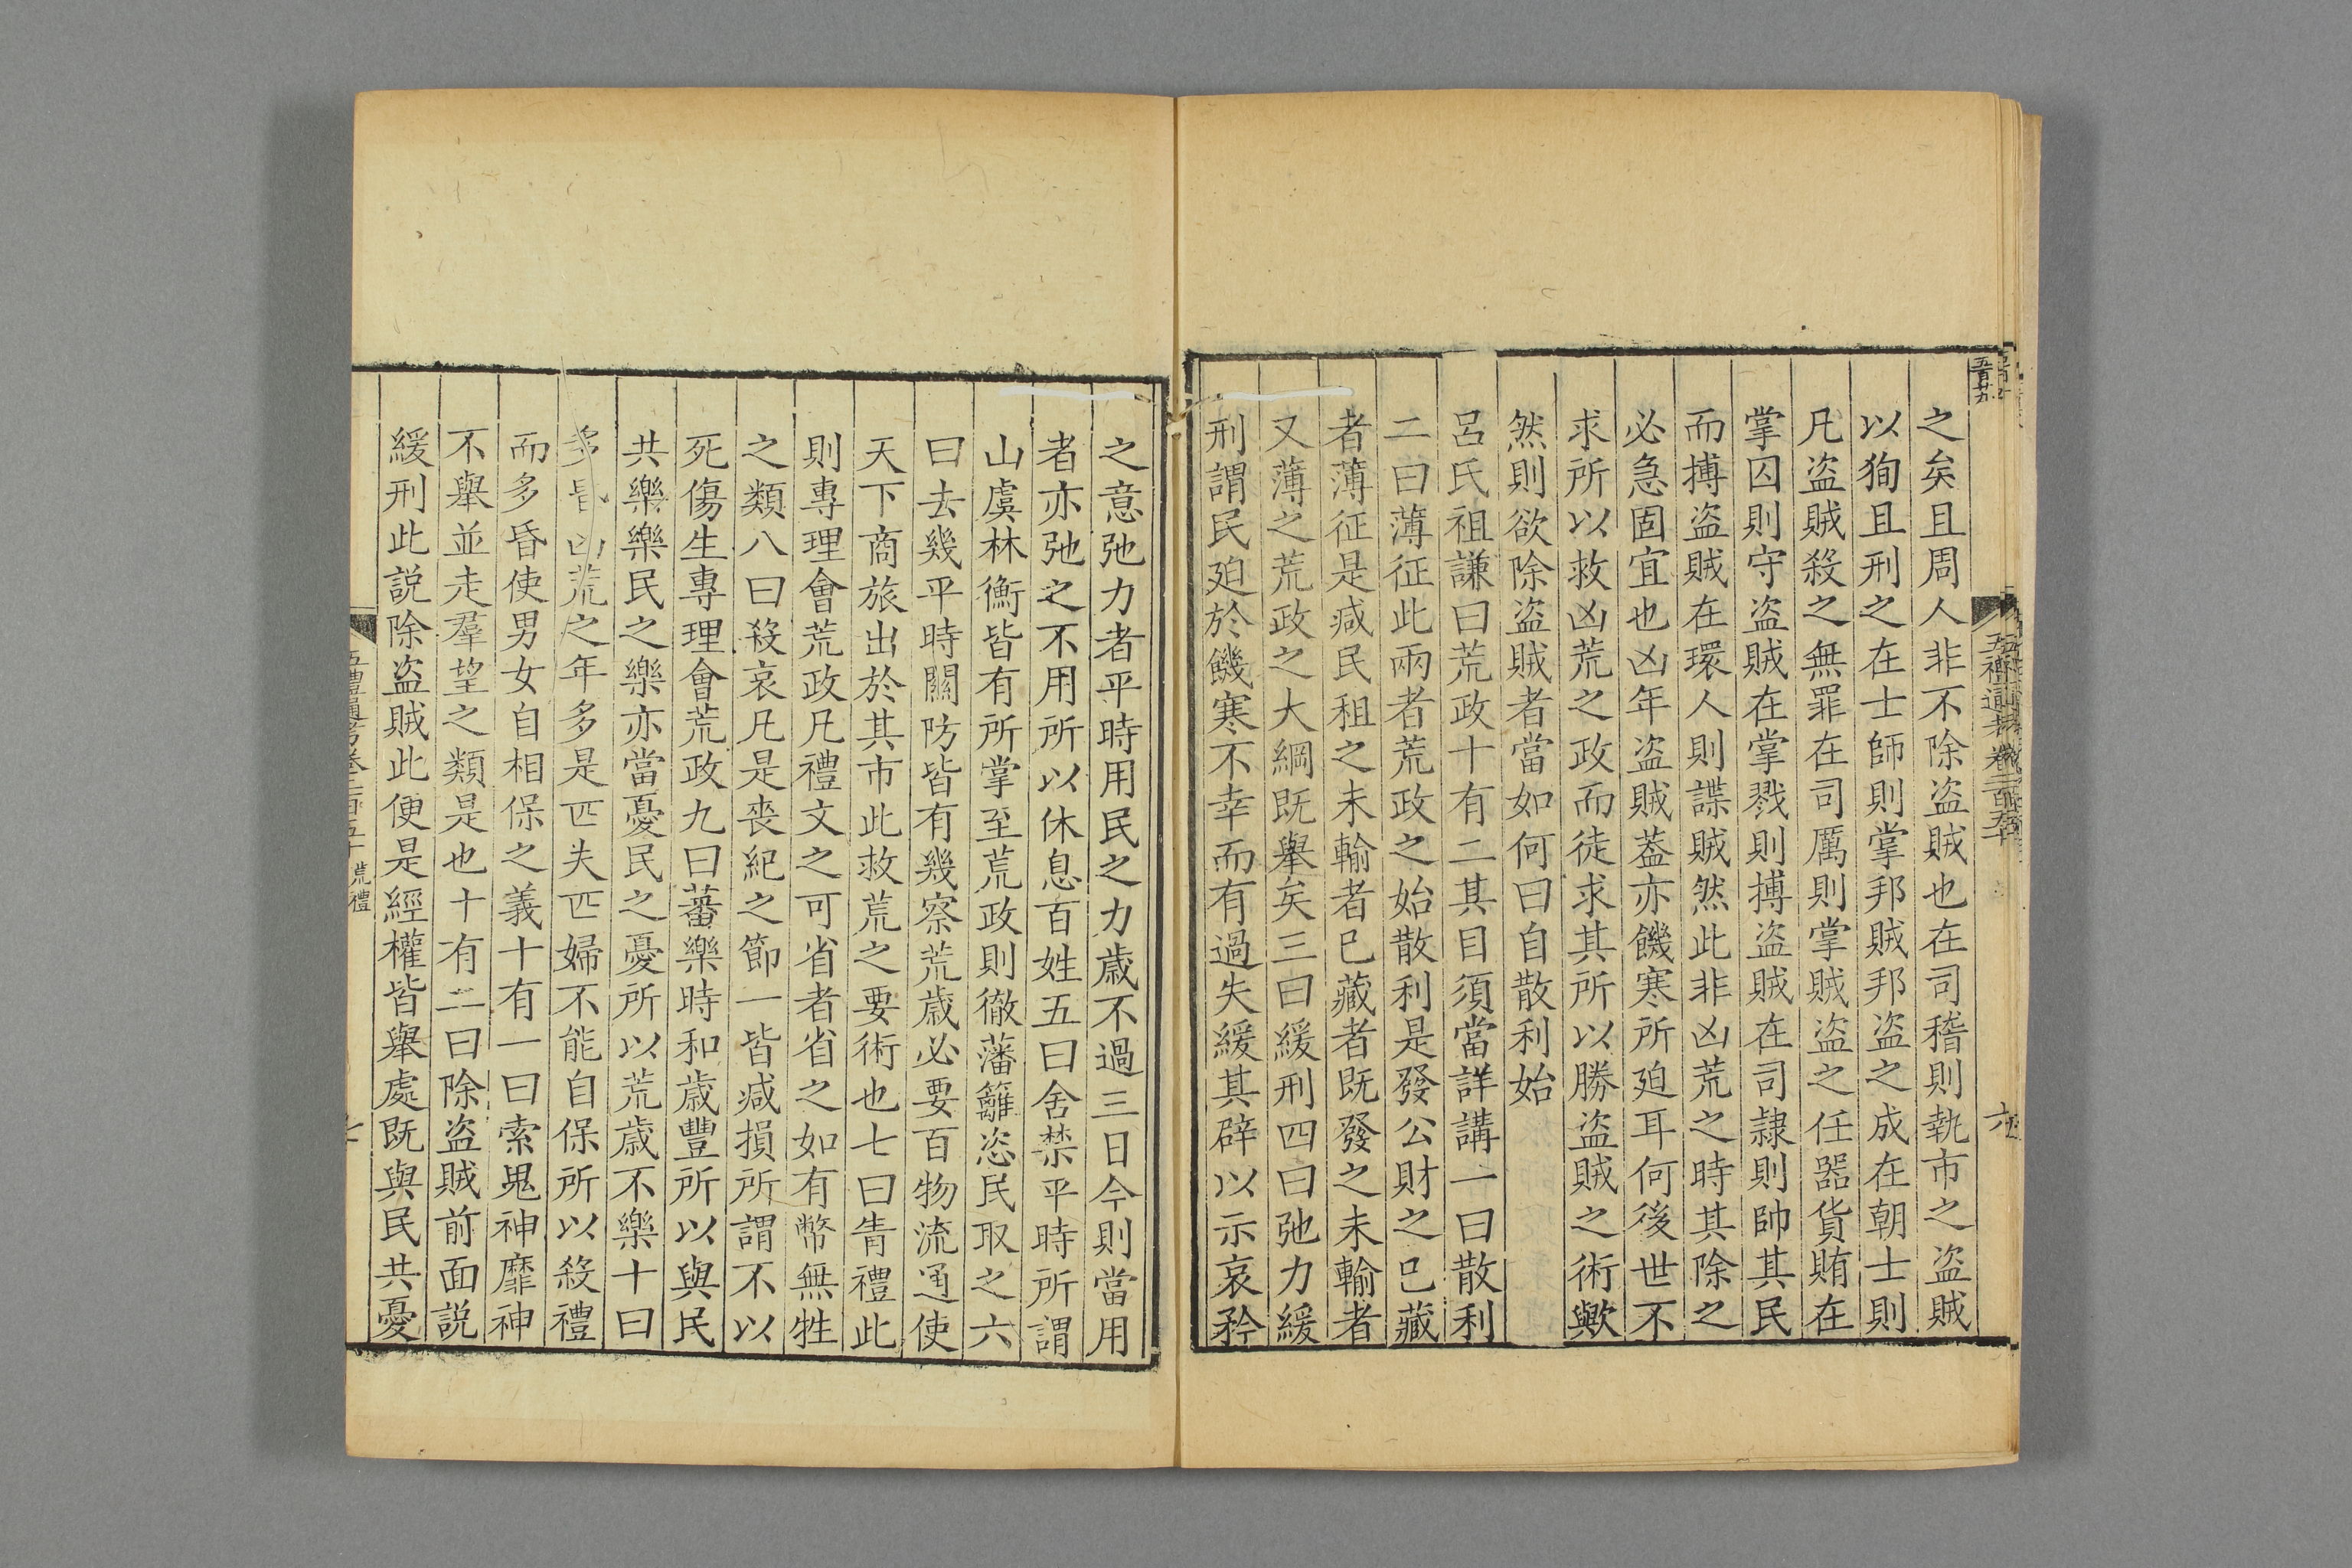 之矣且周人非不除盗賊也在司稽則執市之盗賊
以狥且刑之在士師則掌邦賊邦盗之成在朝士則
凡盗賊殺之無罪在司厲則掌賊盗之任器貨賄在
掌囚則守盗賊在掌戮則搏盗賊在司隷則帥其民
而搏盗賊在環人則諜賊然此非凶荒之時其除之
必急固宜也凶年盗賊葢亦饑寒所廹耳何後世不
求所以救凶荒之政而徒求其所以勝盗賊之術歟
然則欲除盗賊者當如何曰自散利始
呂氏祖謙曰荒政十有二其目須當詳講一曰散利
二曰薄征此兩者荒政之始散利是發公財之已藏
者薄征是減民租之未輸者已藏者既發之未輸者
又薄之荒政之大綱既舉矣三曰緩刑四曰弛力緩
刑謂民廹於饑寒不幸而有過失緩其辟以示哀矜
之意弛力者平時用民之力歲不過三日今則當用
者亦弛之不用所以休息百姓五曰舍禁平時所謂
山虞林衡皆有所掌至荒政則徹藩籬恣民取之六
曰去幾平時關防皆有幾察荒歲必要百物流通使
天下商旅出於其市此救荒之要術也七曰眚禮此
則專理會荒政凡禮文之可省者省之如有幣無牲
之類八曰殺哀凡是喪紀之節一皆減損所謂不以
死傷生專理會荒政九曰蕃樂時和歲豐所以與民
共樂樂民之樂亦當憂民之憂所以荒歲不樂十曰
多昏凶荒之年多是匹夫匹婦不能自保所以殺禮
而多昏使男女自相保之義十有一曰索鬼神靡神
不舉並走羣望之類是也十有二曰除盗賊前面説
緩刑此説除盗賊此便是經權皆舉處既與民共憂
五禮通考卷二百五十 荒禮